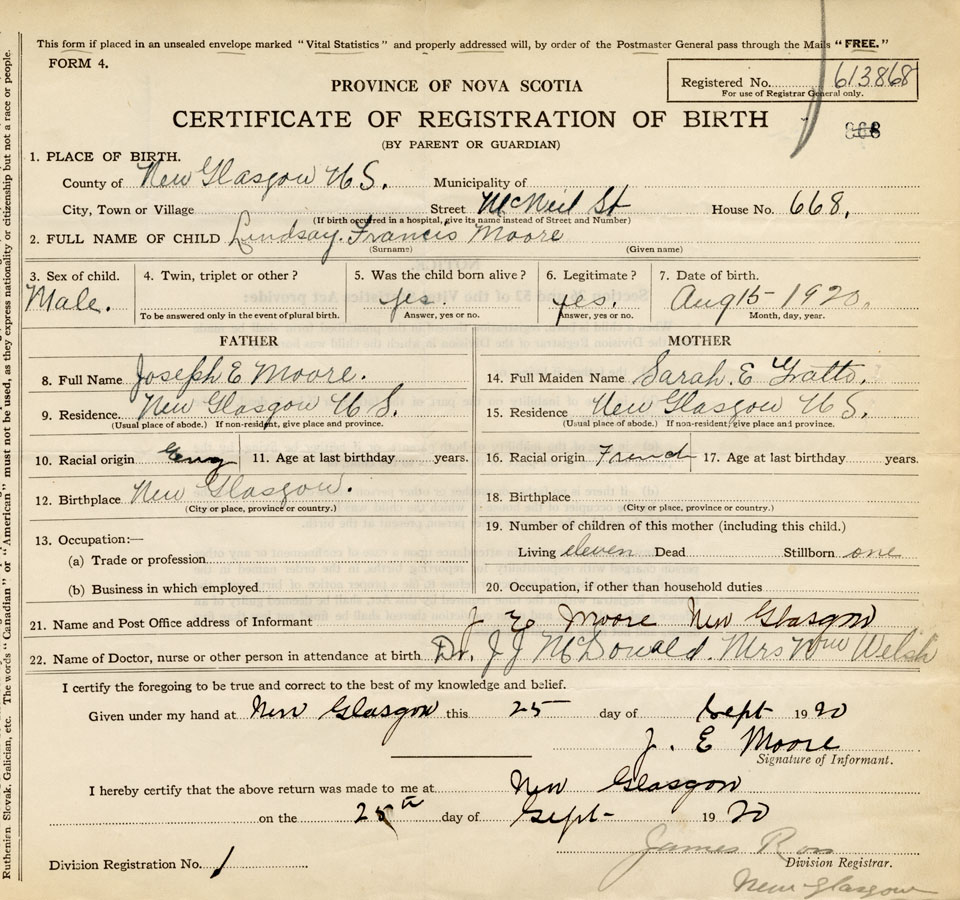 This form if placed in an unsealed envelope marked "Vital Statistics" and properly addressed will, by order of the Postmaster General pass through the Mails "FREE."
FORM 4.
Registered No. 613868
For use of Registrar General only.
PROVINCE OF NOVA SCOTIA
CERTIFICATE OF REGISTRATION OF BIRTH
868
(BY PARENT OR GUARDIAN)
1. PLACE OF BIRTH.
County of New Glasgow N S. Municipality of
City, Town or Village Street McNeil St House No. 668.
(If birth occurred in a hospital, give its name instead of Street and Number)
2. FULL NAME OF CHILD Lindsay. Francis Moore
(Surname) (Given name)
3. Sex of child. 4. Twin, triplet or other? 5. Was the child born alive? 6. Legitimate? 7. Date of birth.
Male. yes. yes. Aug 15-1920.
To be answered only in the event of plural birth. Answer, yes or no. Answer, yes or no. Month, day, year.
FATHER
8. Full Name Joseph E Moore.
9. Residence. New Glasgow N S.
(Usual place of abode.) If non-resident, give place and province.
10. Racial origin Eng 11. Age at last birthday years.
12. Birthplace New Glasgow.
(City or place, province or country.)
13. Occupation:—
(a) Trade or profession
(b) Business in which employed
MOTHER
14. Full Maiden Name Sarah. E
15. Residence New Glasgow N S.
(Usual place of abode.) If non-resident, give place and province.
16. Racial origin French 17. Age at last birthday years.
18. Birthplace
(City or place, province or country.)
19. Number of children of this mother (including this child.)
Living eleven Dead Stillborn one
20. Occupation, if other than household duties
21. Name and Post Office address of Informant J E Moore New Glasgow
22. Name of Doctor, nurse or other person in attendance at birth Dr. J J McDonald. Mrs Wm Welsh
I certify the foregoing to be true and correct to the best of my knowledge and belief.
Given under my hand at New Glasgow this 25 day of Sept 1920
J. E Moore
Signature of Informant.
I hereby certify that the above return was made to me at New Glasgow
on the 25th day of Sept- 1920
James Ross
Division Registrar.
Division Registration No. 1
New Glasgow
Ruthenian, Slovak, Galician, etc. The words "Canadian" or "American" must not be used, as they express nationality or citizenship but not a race or people.